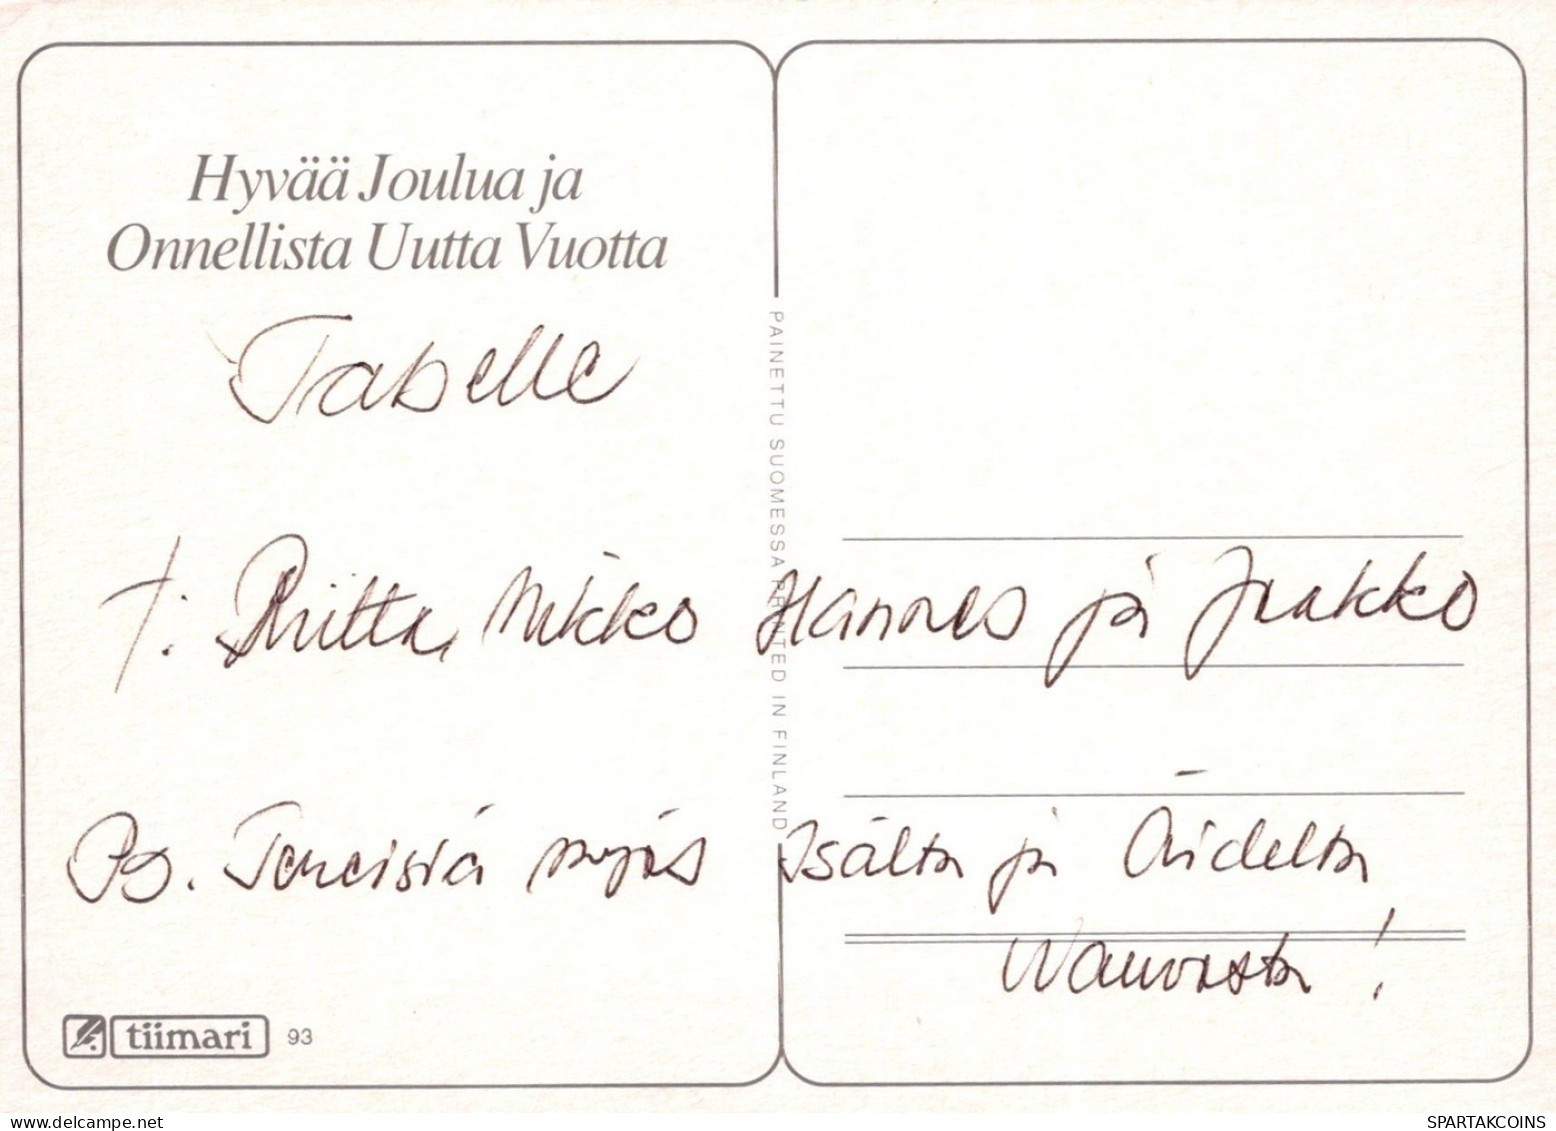 Hyvää Joulua ja
Onnellista Uutta Vuotta
T: Riitta, Mikko Hannes ja Jaakko
Ps. Terveisiä myös Isältä ja Äideltä
!
PAINETTU SUOMESSA PRINTED IN FINLAND
tiimari 93
delcampe.net
SPARTAKCOINS